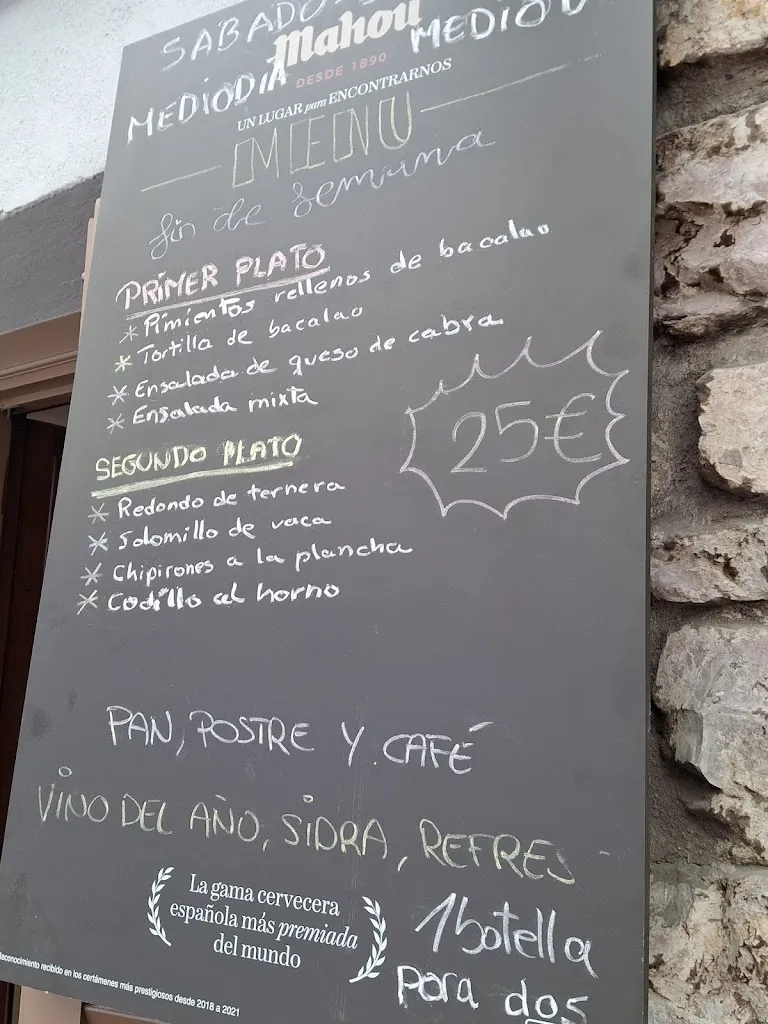 SABADO
Mahou
MEDIODIA
MEDIOD
DESDE 1890
UN LUGAR para ENCONTRARNOS
MENU
fin de semana
PRIMER PLATO
* Pimientos rellenos de bacalao
* Tortilla de bacalao
* Ensalada de queso de cabra
* Ensalada mixta
25€
SEGUNDO PLATO
* Redondo de ternera
* Solomillo de vaca
* Chipirones a la plancha
* Codillo al horno
PAN, POSTRE Y CAFÉ
VINO DEL AÑO, SIDRA, REFRES
La gama cervecera
española más premiada
del mundo
1 botella
para dos
Reconocimiento recibido en los certámenes más prestigiosos desde 2018 a 2021